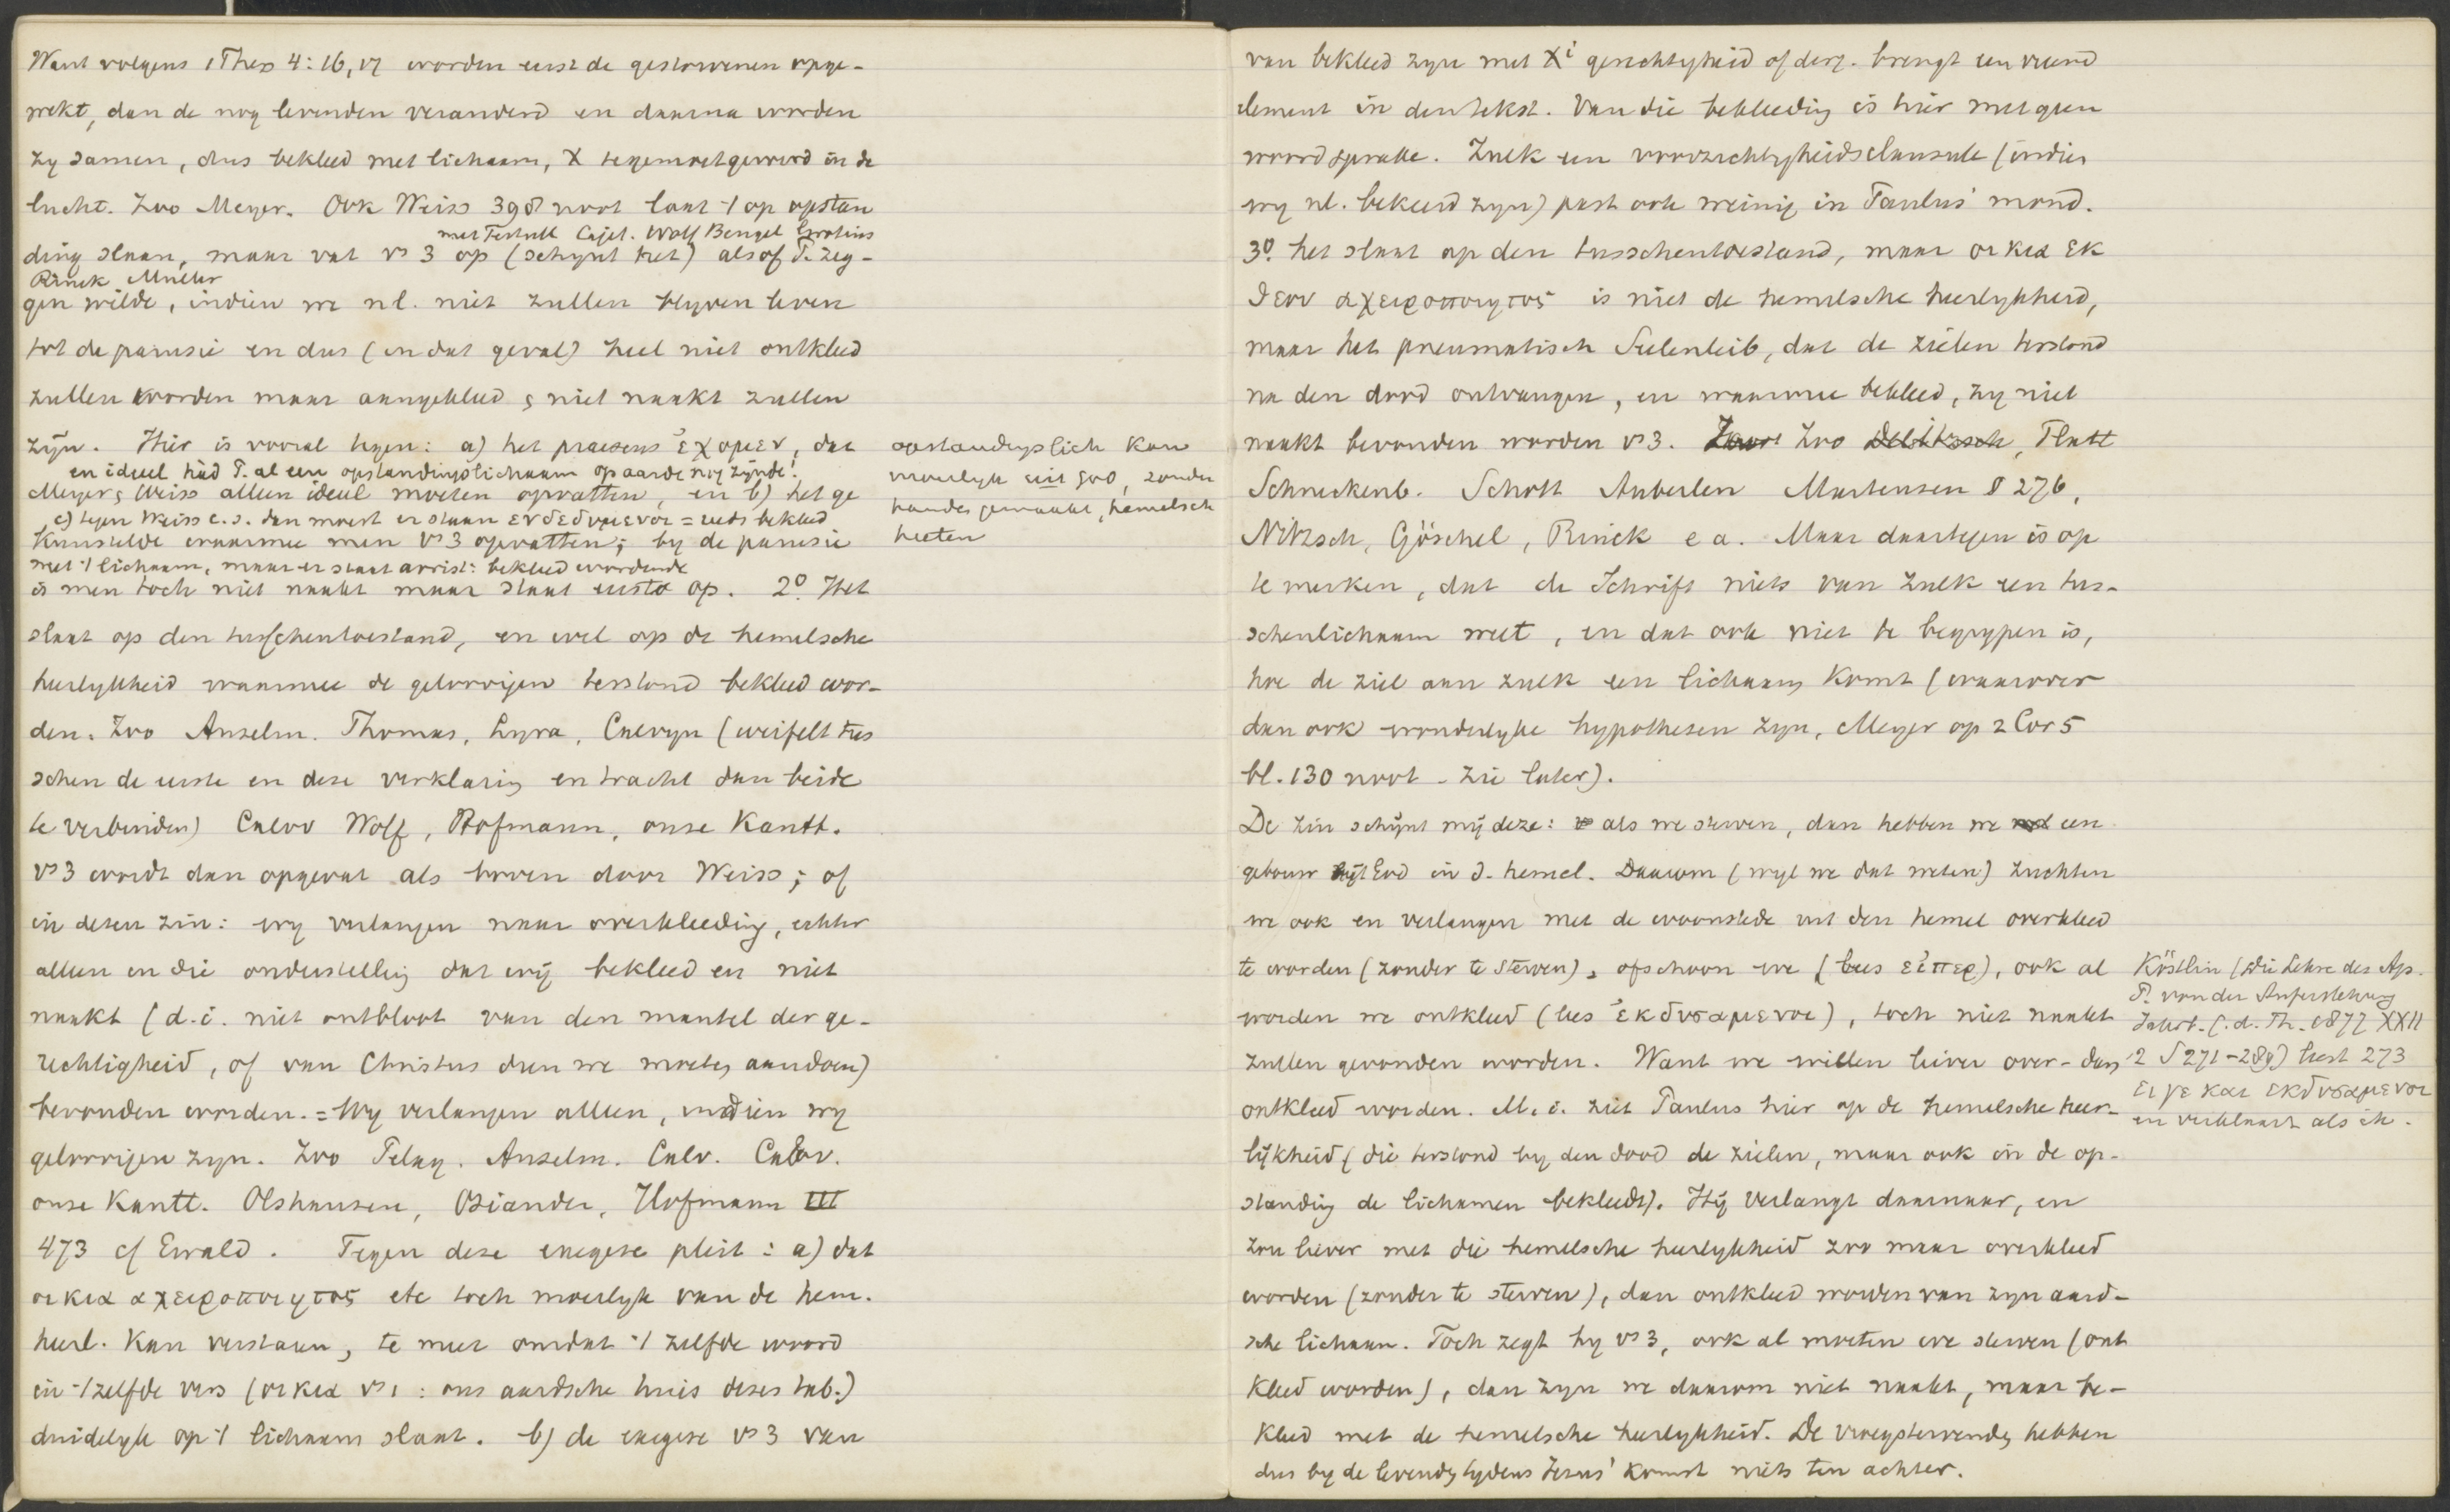 Want volgens 1 Thess 4:16,17 worden eerst de gestorvenen opge-
wekt, dan de nog levenden veranderd en daarna worden
zy samen, dus bekleed met lichaam, X tegemoetgevoerd in de
lucht. Zoo Meyer. Ook Weiss 398 noot laat 't op opstan
met Tertull Cajet. Wolf Bengel Grotius
ding slaan, maar vat vs 3 op (schynt het) alsof P. zeg-
Rinck Muller
gen wilde, indien we nl. niet zullen blyven leven
tot de parusie en dus (in dat geval) heel niet ontkleed
zullen worden maar aangekleed & niet naakt zullen
zijn. Hier is vooral tegen: a) het praesens ἐχομεν, dat
en ideeel had P. al een opstandingslichaam op aarde nog zynde!
Meyer & Weiss alleen ideeel moeten opvatten, en b) het ge
c) tegen Weiss e.s. dan moest er staan ενδεδυμενοι = reeds bekleed
kunstelde waarmee men vs 3 opvatten; by de parusie
met 't lichaam, maar er staat aorist: bekleed wordende
is men toch niet naakt maar staat eerst op. 2º. Het
slaat op den tusschentoestand, en wel op de hemelsche
heerlykheid waarmee de geloovigen terstond bekleed wor-
den. Zoo Anselm. Thomas, Lyra, Calvyn (weifelt tus
schen de eerste en deze verklaring en tracht dan beide
te verbinden) Calov Wolf, Hofmann, onze Kantt.
vs 3 wordt dan opgevat als boven door Weiss; of
in dezen zin: wy verlangen naar overkleeding, echter
alleen in die onderstelling dat wij bekleed en niet
naakt (d.i. niet ontbloot van den mantel der ge-
rechtigheid, of van Christus dien we moeten aandoen)
bevonden worden. = Wy verlangen alleen, indien wy
geloovigen zyn. Zoo Pelag. Anselm. Calv. Calov.
onze Kantt. Olshausen, Osiander, Hofmann III
473 cf Ewald. Tegen deze exegese pleit: a) dat
οικια αχειροποιητος etc toch moeilyk van de hem.
heerl. kan verstaan, te meer omdat 't zelfde woord
in 't zelfde vers (οικια vs 1: ons aardsche huis dezes tab.)
duidelyk op 't lichaam slaat. b) de exegese vs 3 van
opstandingslich kan
moeilyk uit God, zonder
handen gemaakt, hemelsch
heeten
van bekleed zyn met Xi gerechtigheid of derg. brengt een vreemd
element in den tekst. Van die bekleeding is hier met geen
woord sprake. Zulk een voorzichtigheidsclausule (indien
wy nl. bekeerd zyn) past ook weinig in Paulus' mond.
3º. het slaat op den tusschentoestand, maar οικια εκ
θεου αχειροποιητος is niet de hemelsche heerlykheid,
maar het pneumatisch Seelenleib, dat de zielen terstond
na den dood ontvangen, en waarmee bekleed, zy niet
naakt bevonden worden vs 3. Zoo Delitzsch, Flatt
Schneckenb. Schott Auberlen Martensen § 276,
Nitzsch, Göschel, Rinck e a. Maar daartegen is op
te merken, dat de Schrift niets van zulk een tus-
schenlichaam weet, en dat ook niet te begrypen is,
hoe de ziel aan zulk een lichaam komt (waarover
dan ook wonderlyke hypothesen zyn, Meyer op 2 Cor 5
bl. 130 noot - zie later).
De zin schijnt mij deze: als we sterven, dan hebben we een
gebouw bij God in d. hemel. Daarom (wyl we dat weten) zuchten
we ook en verlangen met de woonstede uit den hemel overkleed
te worden (zonder te sterven), ofschoon we (lees εἰπερ), ook al
worden we ontkleed (lees ἐκδυσαμενοι), toch niet naakt
zullen gevonden worden. Want we willen liever over- dan
ontkleed worden. M.i. ziet Paulus hier op de hemelsche heer-
lijkheid (die terstond by den dood de zielen, maar ook in de op-
standing de lichamen bekleedt). Hij verlangt daarnaar, en
zou liever met die hemelsche heerlykheid zoo maar overkleed
worden (zonder te sterven), dan ontkleed worden van zyn aard-
sche lichaam. Toch zegt hy vs 3, ook al moeten we sterven (ont
kleed worden), dan zyn we daarom niet naakt, maar be-
kleed met de hemelsche heerlykheid. De vroegstervenden hebben
dus by de levenden tydens Jezus' komst niets ten achter.
Köstlin (Die Lehre des Ap.
P. von der Auferstehung
Jahrb. f. d. Th. 1877 XXII
2 S 271-289) leest 273
ει γε και εκδυσαμενοι
en verklaart als ik.